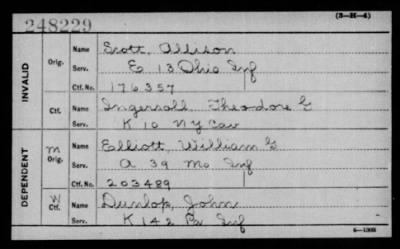 248229
(3-H-4)
INVALID
Orig.
Name Scott, Allison
Serv. E 13 Ohio Inf
Ctf. No. 176357
Ctf.
Name Ingersoll, Theodore G
Serv. K 10 NY Cav
DEPENDENT
M
Orig.
Name Elliott, William G
Serv. A 39 Mo Inf
Ctf. No. 203489
W
Ctf.
Name Dunlop, John
Serv. K 142 Pa Inf